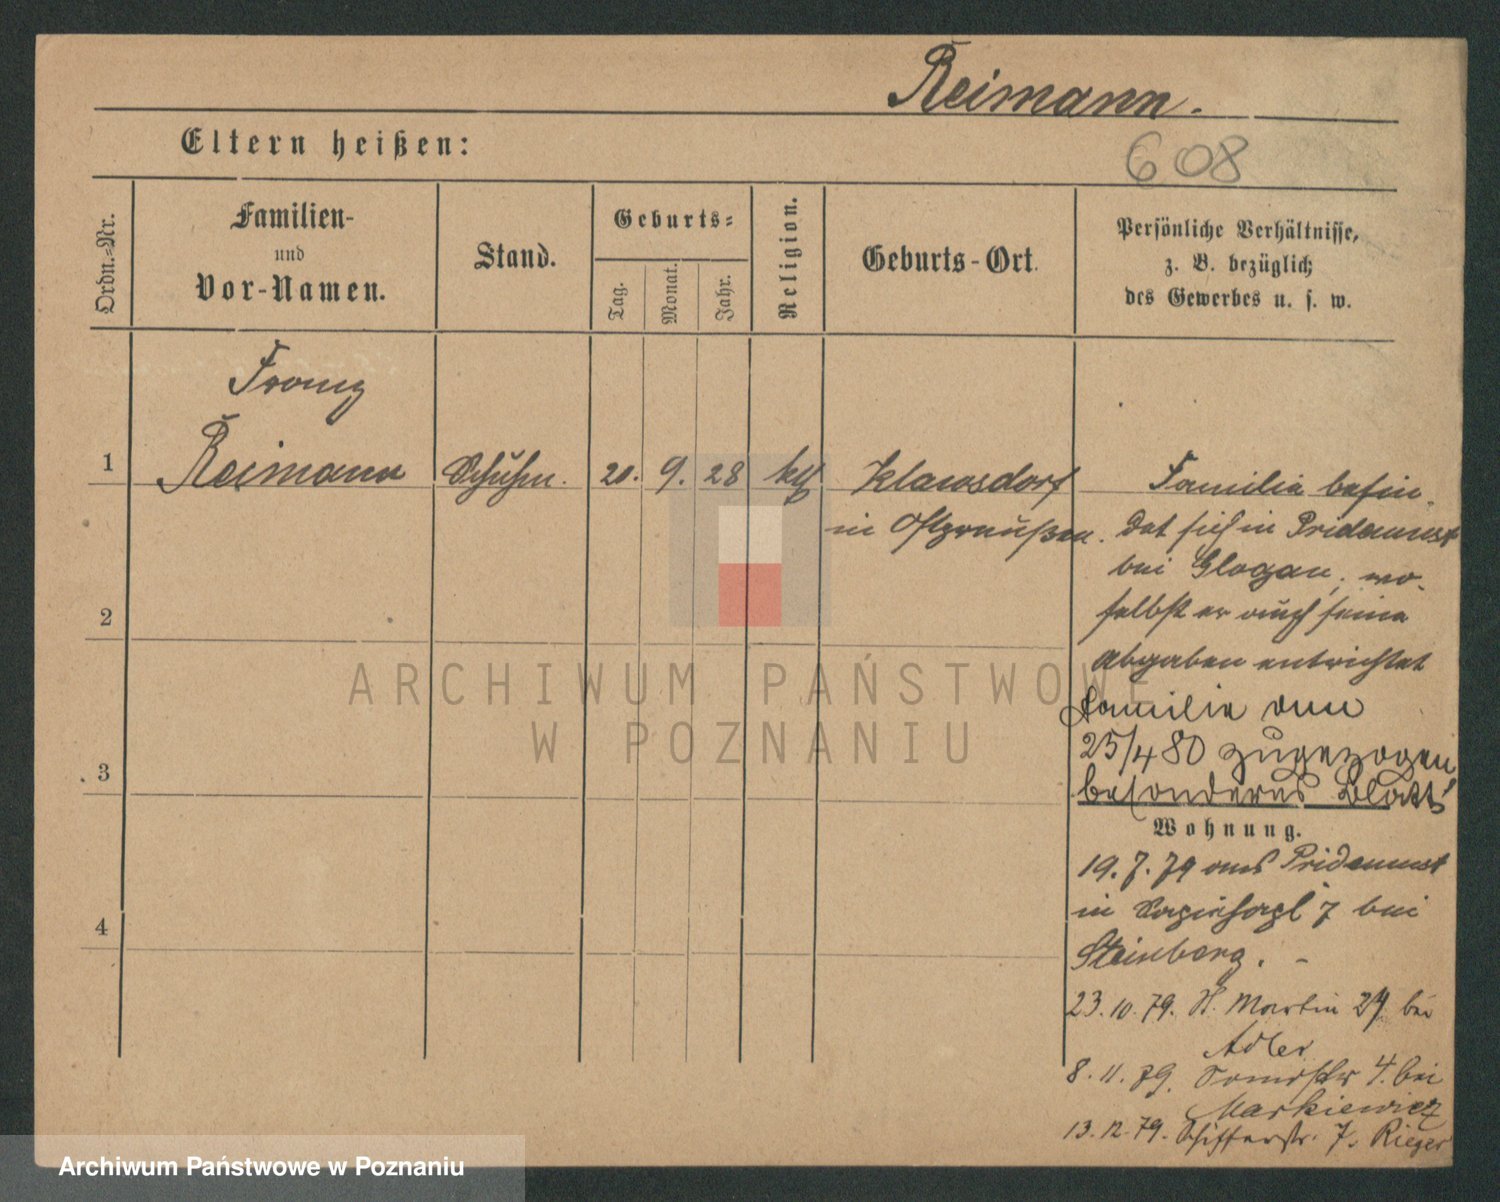 Reimann.
Eltern heißen:
608
Ordn.-Nr.
Familien-
und
Vor-Namen.
Stand.
Geburts-
Tag.
Monat.
Jahr.
Religion.
Geburts-Ort.
Persönliche Verhältnisse,
z. B. bezüglich
des Gewerbes u. s. w.
Franz
1 Reimann Schuhm. 20. 9. 28 kth Klawsdorf
in Ostpreußen.
Familie befin-
det sich in Pridemost
bei Glogau, wo-
selbst er auch seine
Abgaben entrichtet
Familie am
25/4 80 zugezogen
besonderes Blatt
2
3
4
Wohnung.
19. 7. 79 aus Pridemost
in 7 bei
Steinberg.
23. 10. 79. St. Martin 24 bei
Adler
8. 11. 79. 4. bei
Markiewicz
13. 12. 79. Schifferstr. 7. Rieger
ARCHIWUM PAŃSTWOWE
W POZNANIU
Archiwum Państwowe w Poznaniu